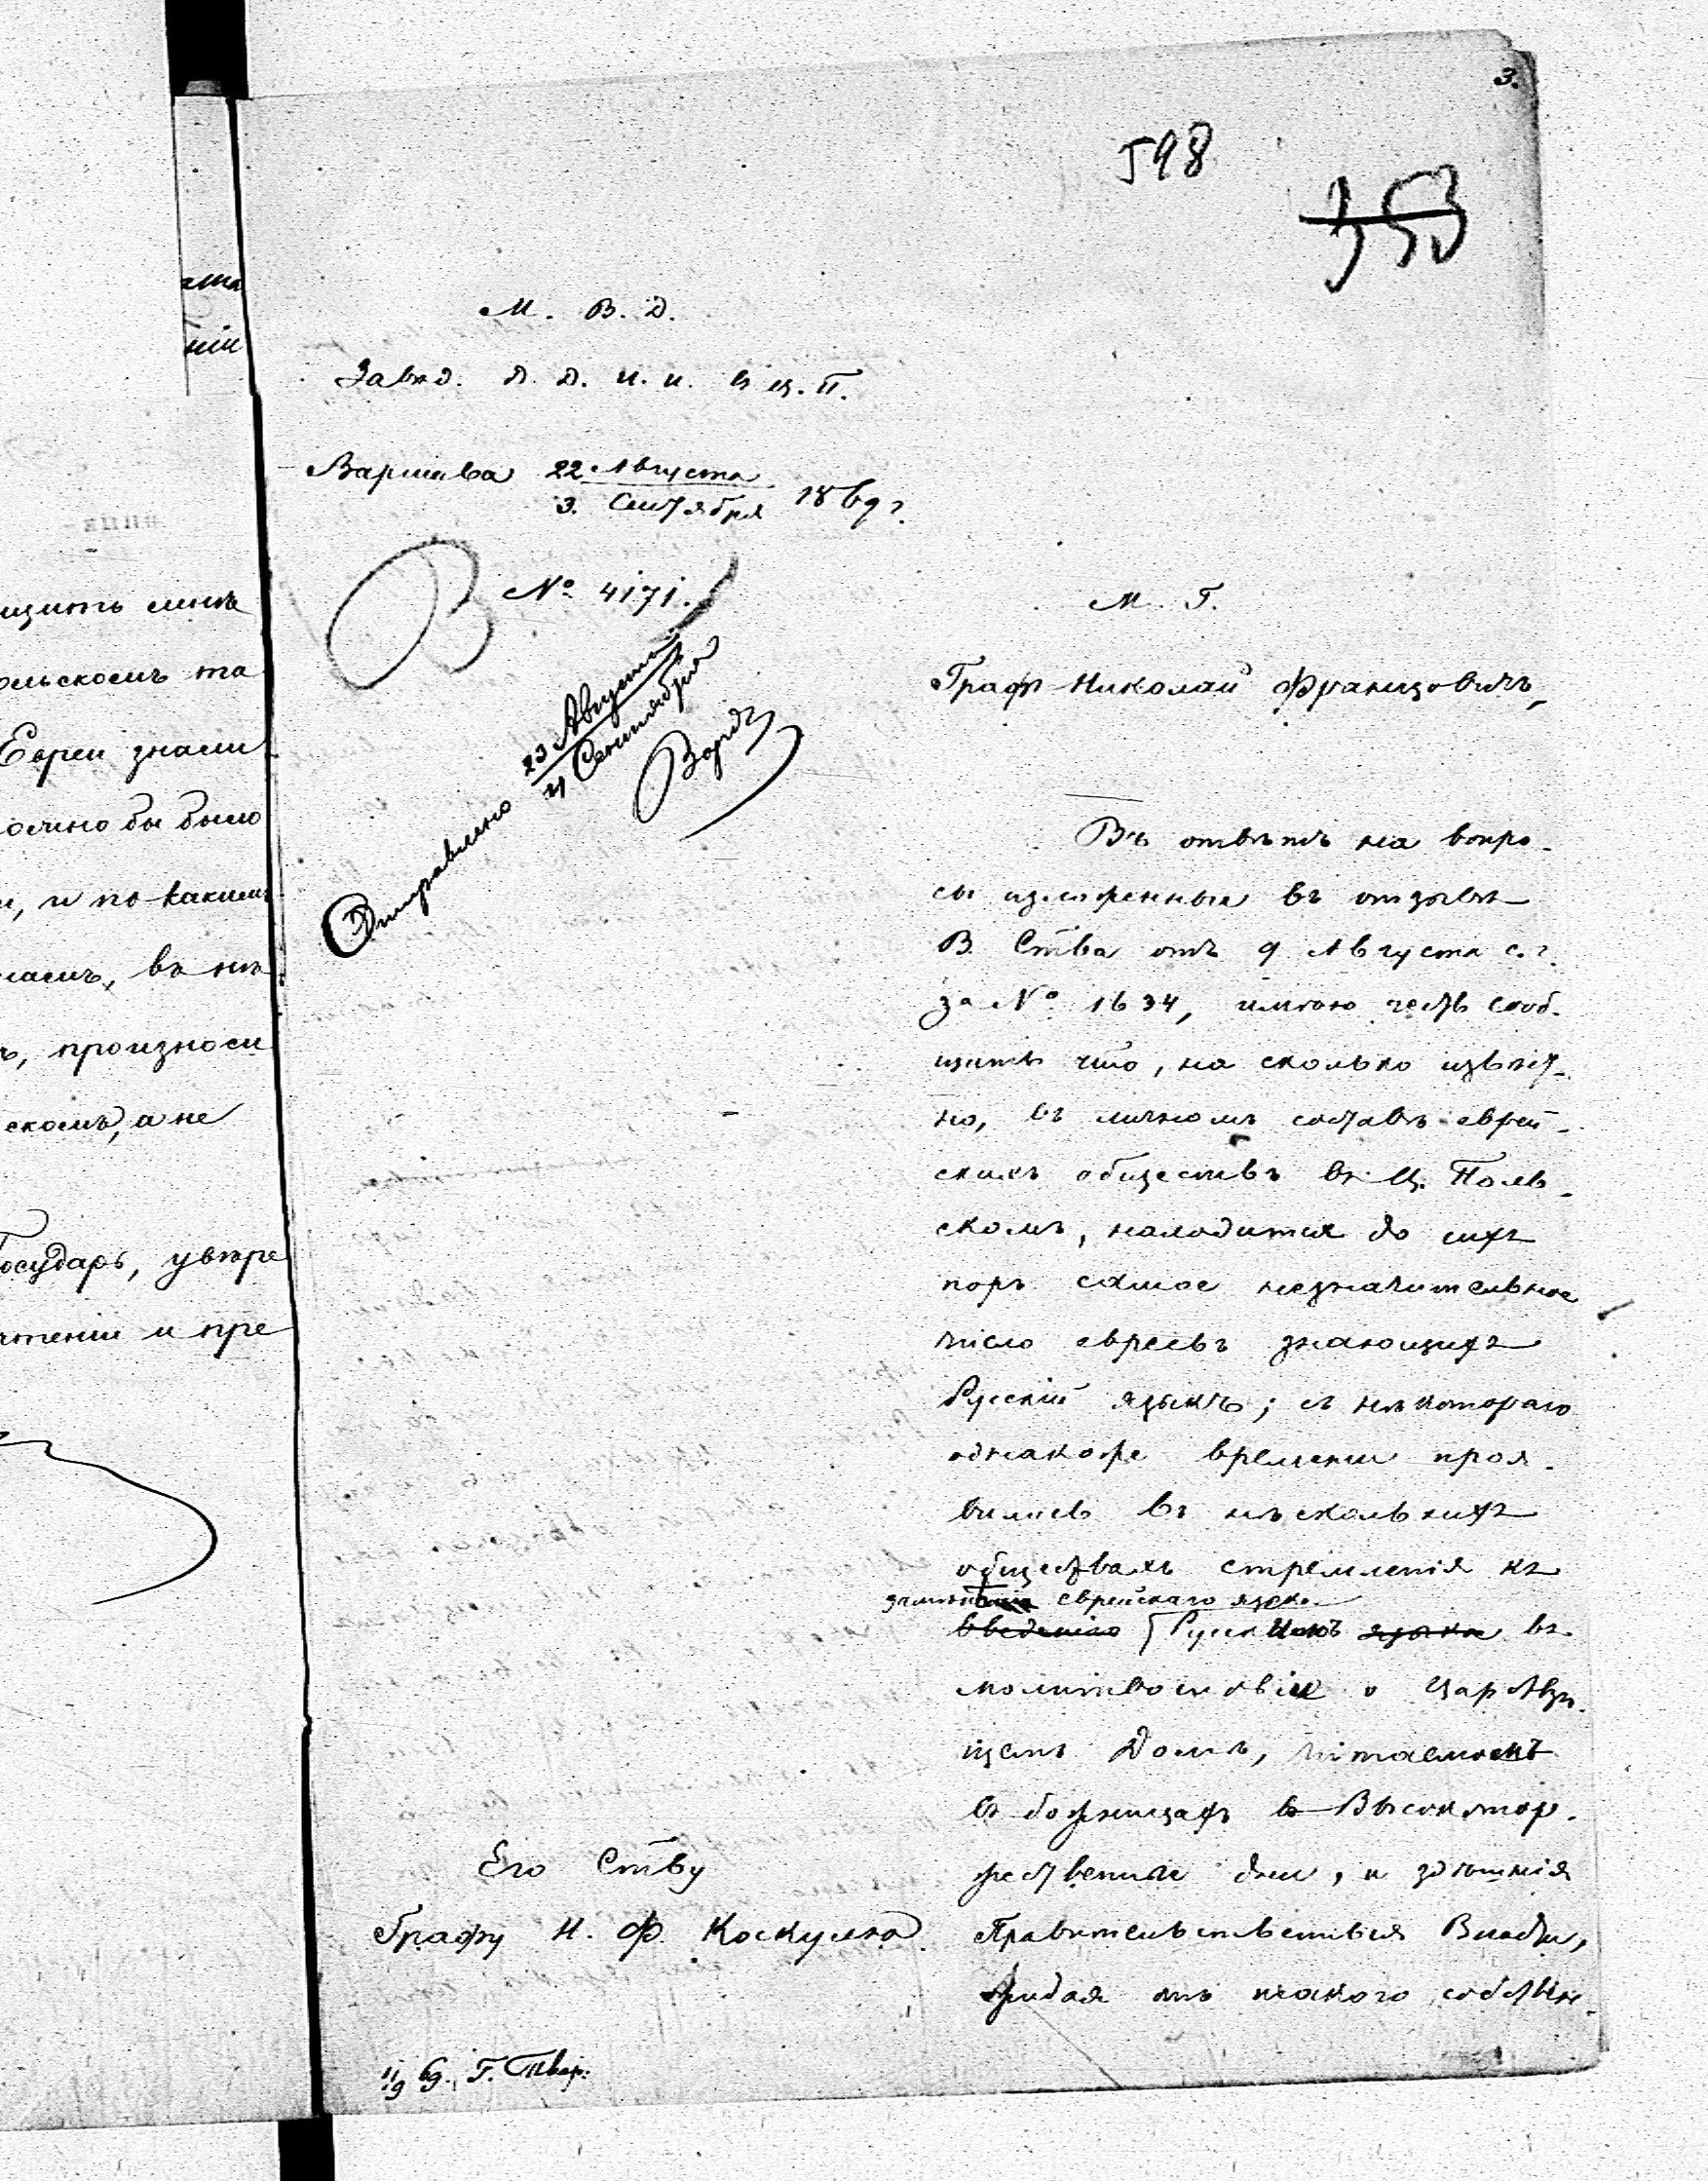 3.
598
353
ніи
М. В. Д.
Завѣд. Д. Д. И. И. въ Ц. П.
Варшава 22 Августа
3. Сентября 1869 г.
№ 4171.
Отправлено 23 Августа
4 Сентября
М. Г.
Графъ Николай Францовичъ,
Въ отвѣтъ на вопро-
сы изложенные въ отзывѣ
В. Ства отъ 9 Августа с. г.
за № 1634, имѣю честь сооб-
щить что, на сколько извѣст-
но, въ личномъ составѣ еврей-
скихъ обществъ въ Ц. Поль-
скомъ, находится до сихъ
поръ самое незначительное
число евреевъ знающихъ
Русскій языкъ; съ нѣкотораго
однакоже времени проя-
вились въ нѣсколькихъ
обществахъ стремленія къ
еврейскаго языка
введенію Русскимъ языка въ
молитвословіи о Царству-
ющемъ Домѣ, читаемомъ
въ божницахъ въ Высокотор-
жественные дни, и здѣшнія
Правительственныя Власти,
ожидая отъ такого
Его Ству
Графу Н. Ф. Коскулю
11/9 69. Г.
щить мнѣ
ольскомъ та
Евреи знали
можно бы было
и, и по какимъ
въ нѣ
ъ, произноси
скомъ, а не
Государь, увѣре
чтеніи и пре